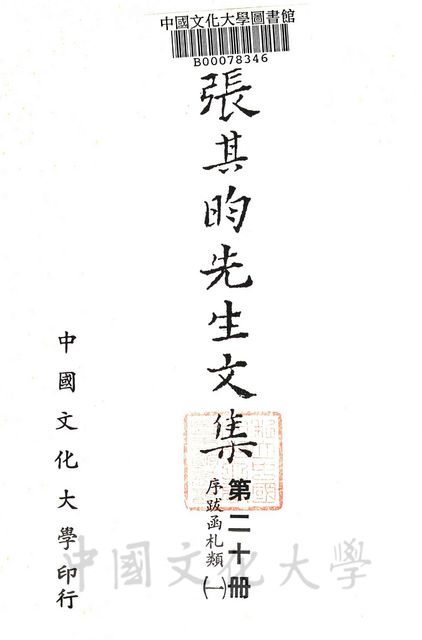 中國文化大學圖書館
B00078346
張其昀先生文集
第二十冊
序跋函札類
㈠
中國文化大學印行
中國文化大學